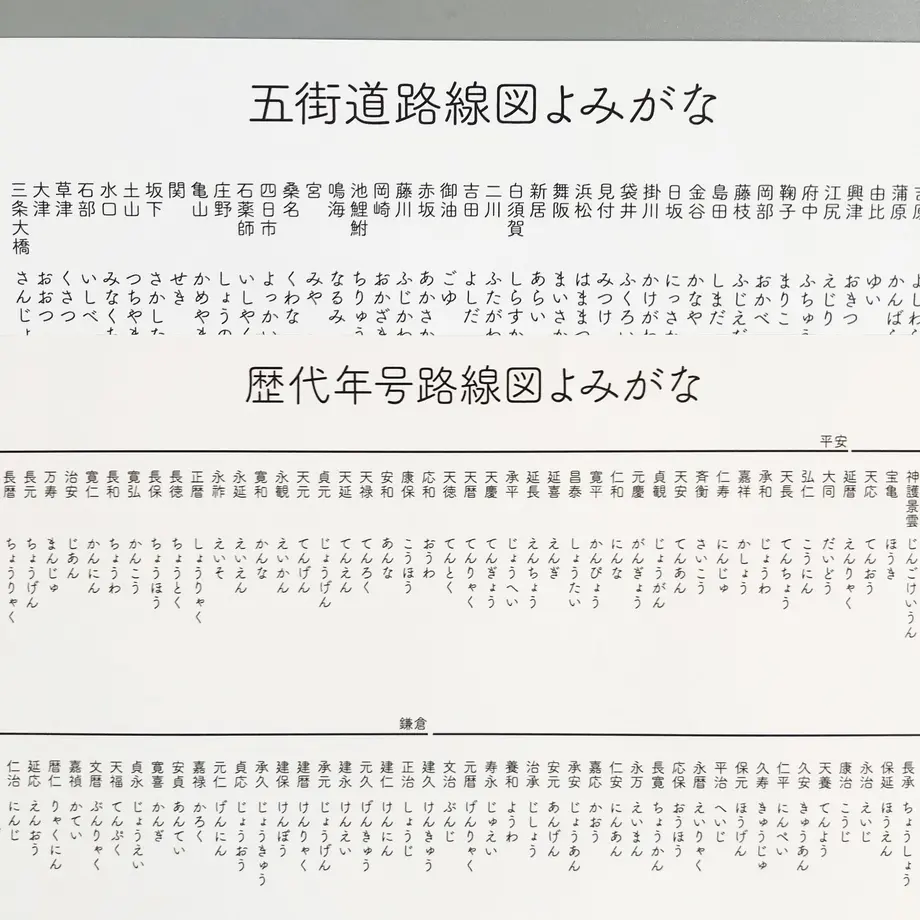 五街道路線図よみがな
蒲原 かんば
由比 ゆい
興津 おきつ
江尻 えじり
府中 ふちゅう
鞠子 まりこ
岡部 おかべ
藤枝 ふじえだ
島田 しまだ
金谷 かなや
日坂 にっさ
掛川 かけが
袋井 ふくろい
見付 みつけ
浜松 はままつ
舞阪 まいさか
新居 あらい
白須賀 しらすか
二川 ふたがわ
吉田 よしだ
御油 ごゆ
赤坂 あかさか
藤川 ふじかわ
岡崎 おかざき
池鯉鮒 ちりゅう
鳴海 なるみ
宮 みや
桑名 くわな
四日市 よっかい
石薬師 いしやく
庄野 しょうの
亀山 かめやま
関 せき
坂下 さかした
土山 つちやま
水口 みなくち
石部 いしべ
草津 くさつ
大津 おおつ
三条大橋 さんじょ
歴代年号路線図よみがな
平安
神護景雲 じんごけいうん
宝亀 ほうき
天応 てんおう
延暦 えんりゃく
大同 だいどう
弘仁 こうにん
天長 てんちょう
承和 じょうわ
嘉祥 かしょう
仁寿 にんじゅ
斉衡 さいこう
天安 てんあん
貞観 じょうがん
元慶 がんぎょう
仁和 にんな
寛平 かんぴょう
昌泰 しょうたい
延喜 えんぎ
延長 えんちょう
承平 じょうへい
天慶 てんぎょう
天暦 てんりゃく
天徳 てんとく
応和 おうわ
康保 こうほう
安和 あんな
天禄 てんろく
天延 てんえん
貞元 じょうげん
天元 てんげん
永観 えいかん
寛和 かんな
永延 えいえん
永祚 えいそ
正暦 しょうりゃく
長徳 ちょうとく
長保 ちょうほう
寛弘 かんこう
長和 ちょうわ
寛仁 かんにん
治安 じあん
万寿 まんじゅ
長元 ちょうげん
長暦 ちょうりゃく
鎌倉
長承 ちょうしょう
保延 ほうえん
永治 えいじ
康治 こうじ
天養 てんよう
久安 きゅうあん
仁平 にんぺい
久寿 きゅうじゅ
保元 ほうげん
平治 へいじ
永暦 えいりゃく
応保 おうほう
長寛 ちょうかん
永万 えいまん
仁安 にんあん
嘉応 かおう
承安 じょうあん
安元 あんげん
治承 じしょう
養和 ようわ
寿永 じゅえい
元暦 げんりゃく
文治 ぶんじ
建久 けんきゅう
正治 しょうじ
建仁 けんにん
元久 げんきゅう
建永 けんえい
承元 じょうげん
建暦 けんりゃく
建保 けんぽう
承久 じょうきゅう
貞応 じょうおう
元仁 げんにん
嘉禄 かろく
安貞 あんてい
寛喜 かんぎ
貞永 じょうえい
天福 てんぷく
文暦 ぶんりゃく
嘉禎 かてい
暦仁 りゃくにん
延応 えんおう
仁治 にんじ